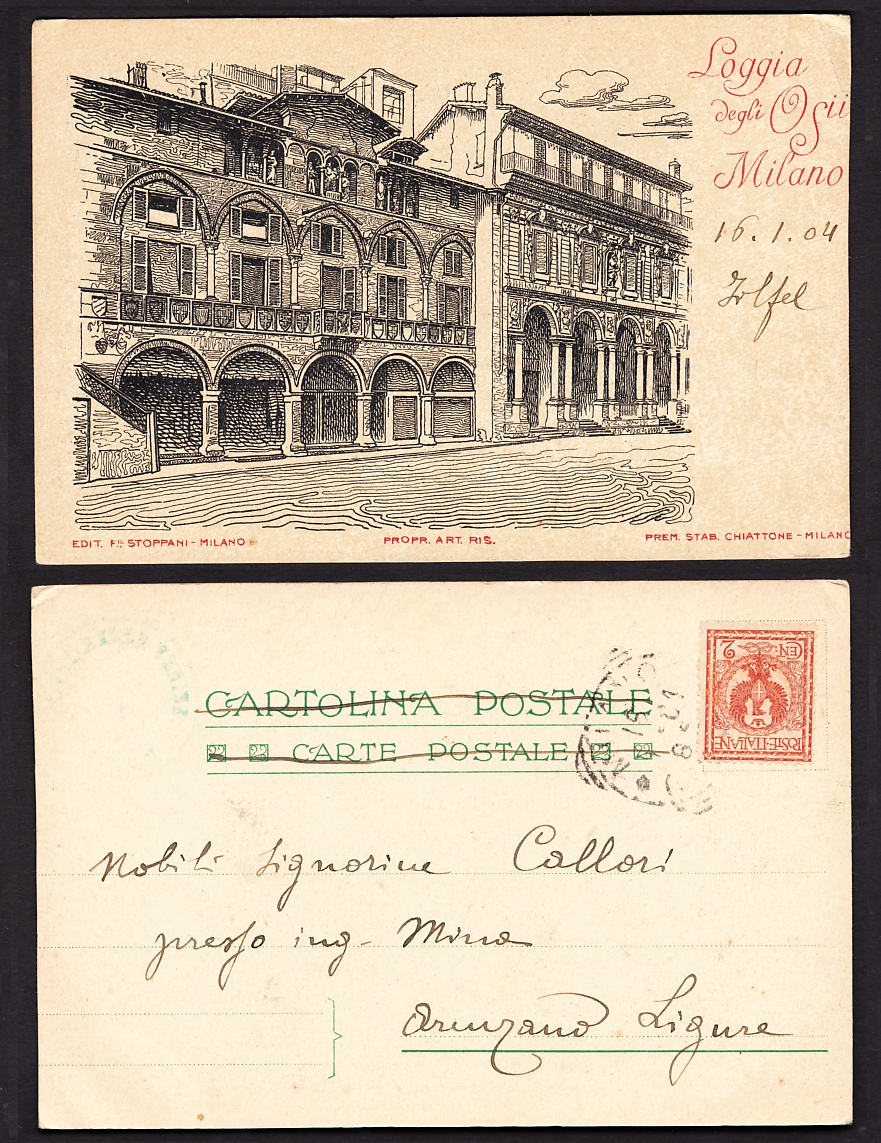 Loggia
degli Osii
Milano
16.1.04
EDIT. F.LI STOPPANI - MILANO
PROPR. ART. RIS.
PREM. STAB. CHIATTONE - MILANO
CARTOLINA POSTALE
CARTE POSTALE
CEN. 2
POSTE·ITALIANE
Nobili Signorine Callori
presso ing. Mina
Arenzano Ligure